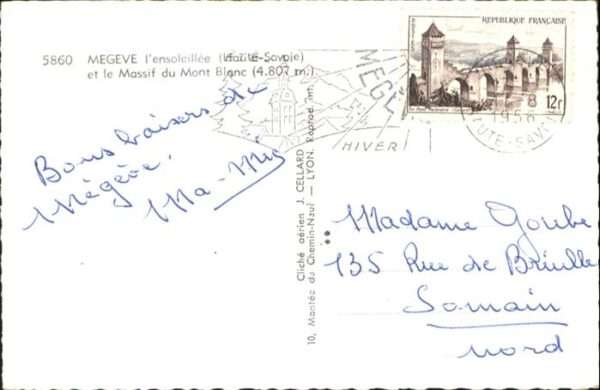 5860 MEGEVE l'ensoleillée (Haute-Savoie)
et le Massif du Mont Blanc (4.807 m.)
REPUBLIQUE FRANÇAISE
12f
MEGÈ
HIVER
8
1956
UTE-SAVOIE
Bons baisers de
Mégève.
Ma-Mie
Cliché aérien J. CELLARD
10, Montée du Chemin-Neuf — LYON. Reprod. int.
Madame Goube
135 Rue de Brielle
Somain
Nord